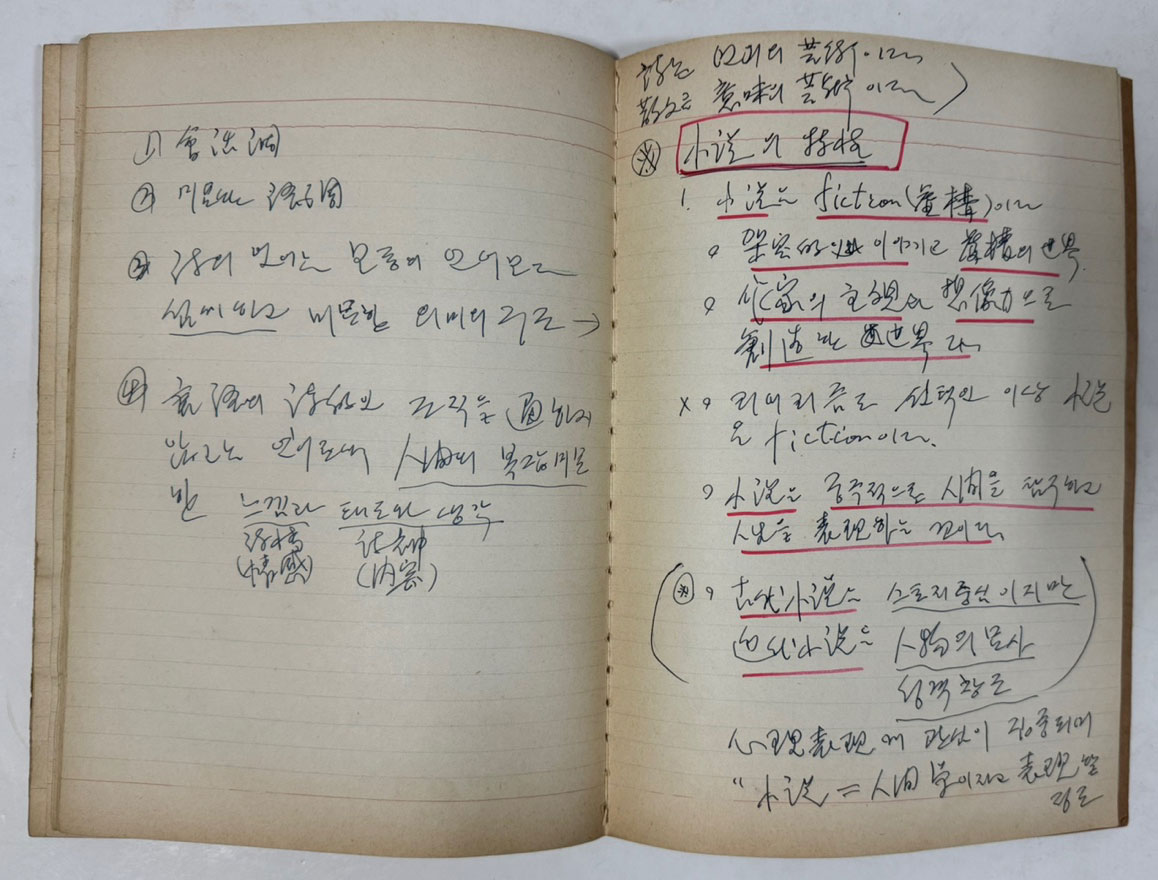 ① 會話調
② 미묘한 語調
③ 詩의 언어는 보통의 언어보다
섬세하고 미묘한 의미의 구조 →
④ 言語의 詩的인 조직을 通하지
않고는 언어로써 人間의 복잡미묘
한 느낌과 태도와 생각
詩情 詩神
(情感) (內容)
詩는 묘미의 芸術이다
散文은 意味의 芸術이다
※ 小說의 特性
1. 小說은 fiction(虛構)이다
架空的 이야기고 虛構의 世界.
作家의 主觀과 想像力으로
創造한 世界다.
× 리아리즘도 선택인 이상 小說
은 fiction이다.
小說은 궁극적으로 人間을 탐구하고
人生을 表現하는 것이다.
(※ 古代小說은 스토리중심이지만
近代小說은 人物의 묘사
성격창조)
心理表現에 관심이 집중되며
"小說 = 人間學이라고 表現할
정도